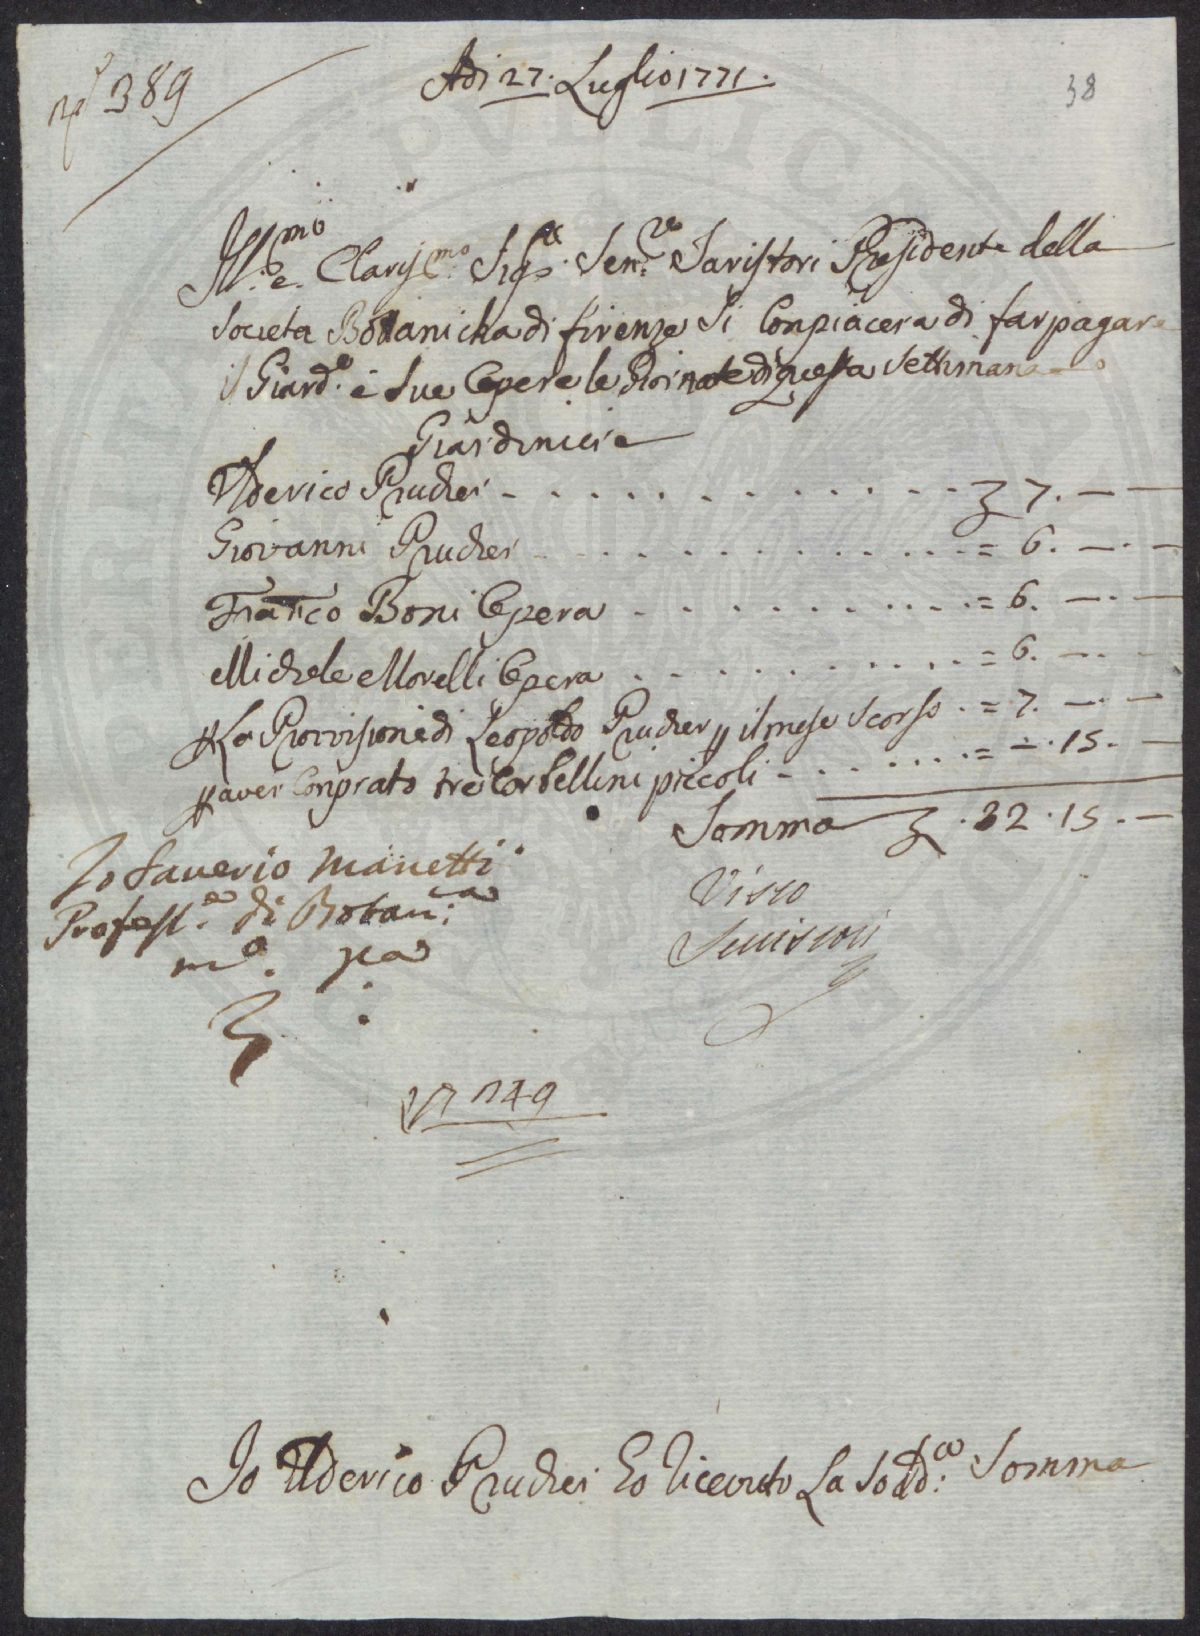 N° 389
Adi 27. Luglio 1771.
38
Ill:mo e. Clariss:mo Sigr: Senre: Taristori Presidente della
Societa Bottanicha di firenze Si Conpiacera di far pagare
il Giard:e e Sue Opere le Giornate di questa Settimana
Giardiniere
Ulderico Prucher - - - - 7. — —
Giovanni Prucher - - - - = 6. — —
Franco Boni Opera - - - - = 6. — —
Michele Morelli Opera - - - - = 6. — —
La Provisione di Leopoldo Prucher il mese Scorso - = 7. — —
aver Conprato tre Corbellini piccoli - - - - = — . 15. —
Somma 32 . 15 . —
Io Saverio Manetti
Profess:e di Botan:ca
mo. pa
Visto
N 149
Io Ulderico Prucher Ho Riceuto La Sodd:a Somma